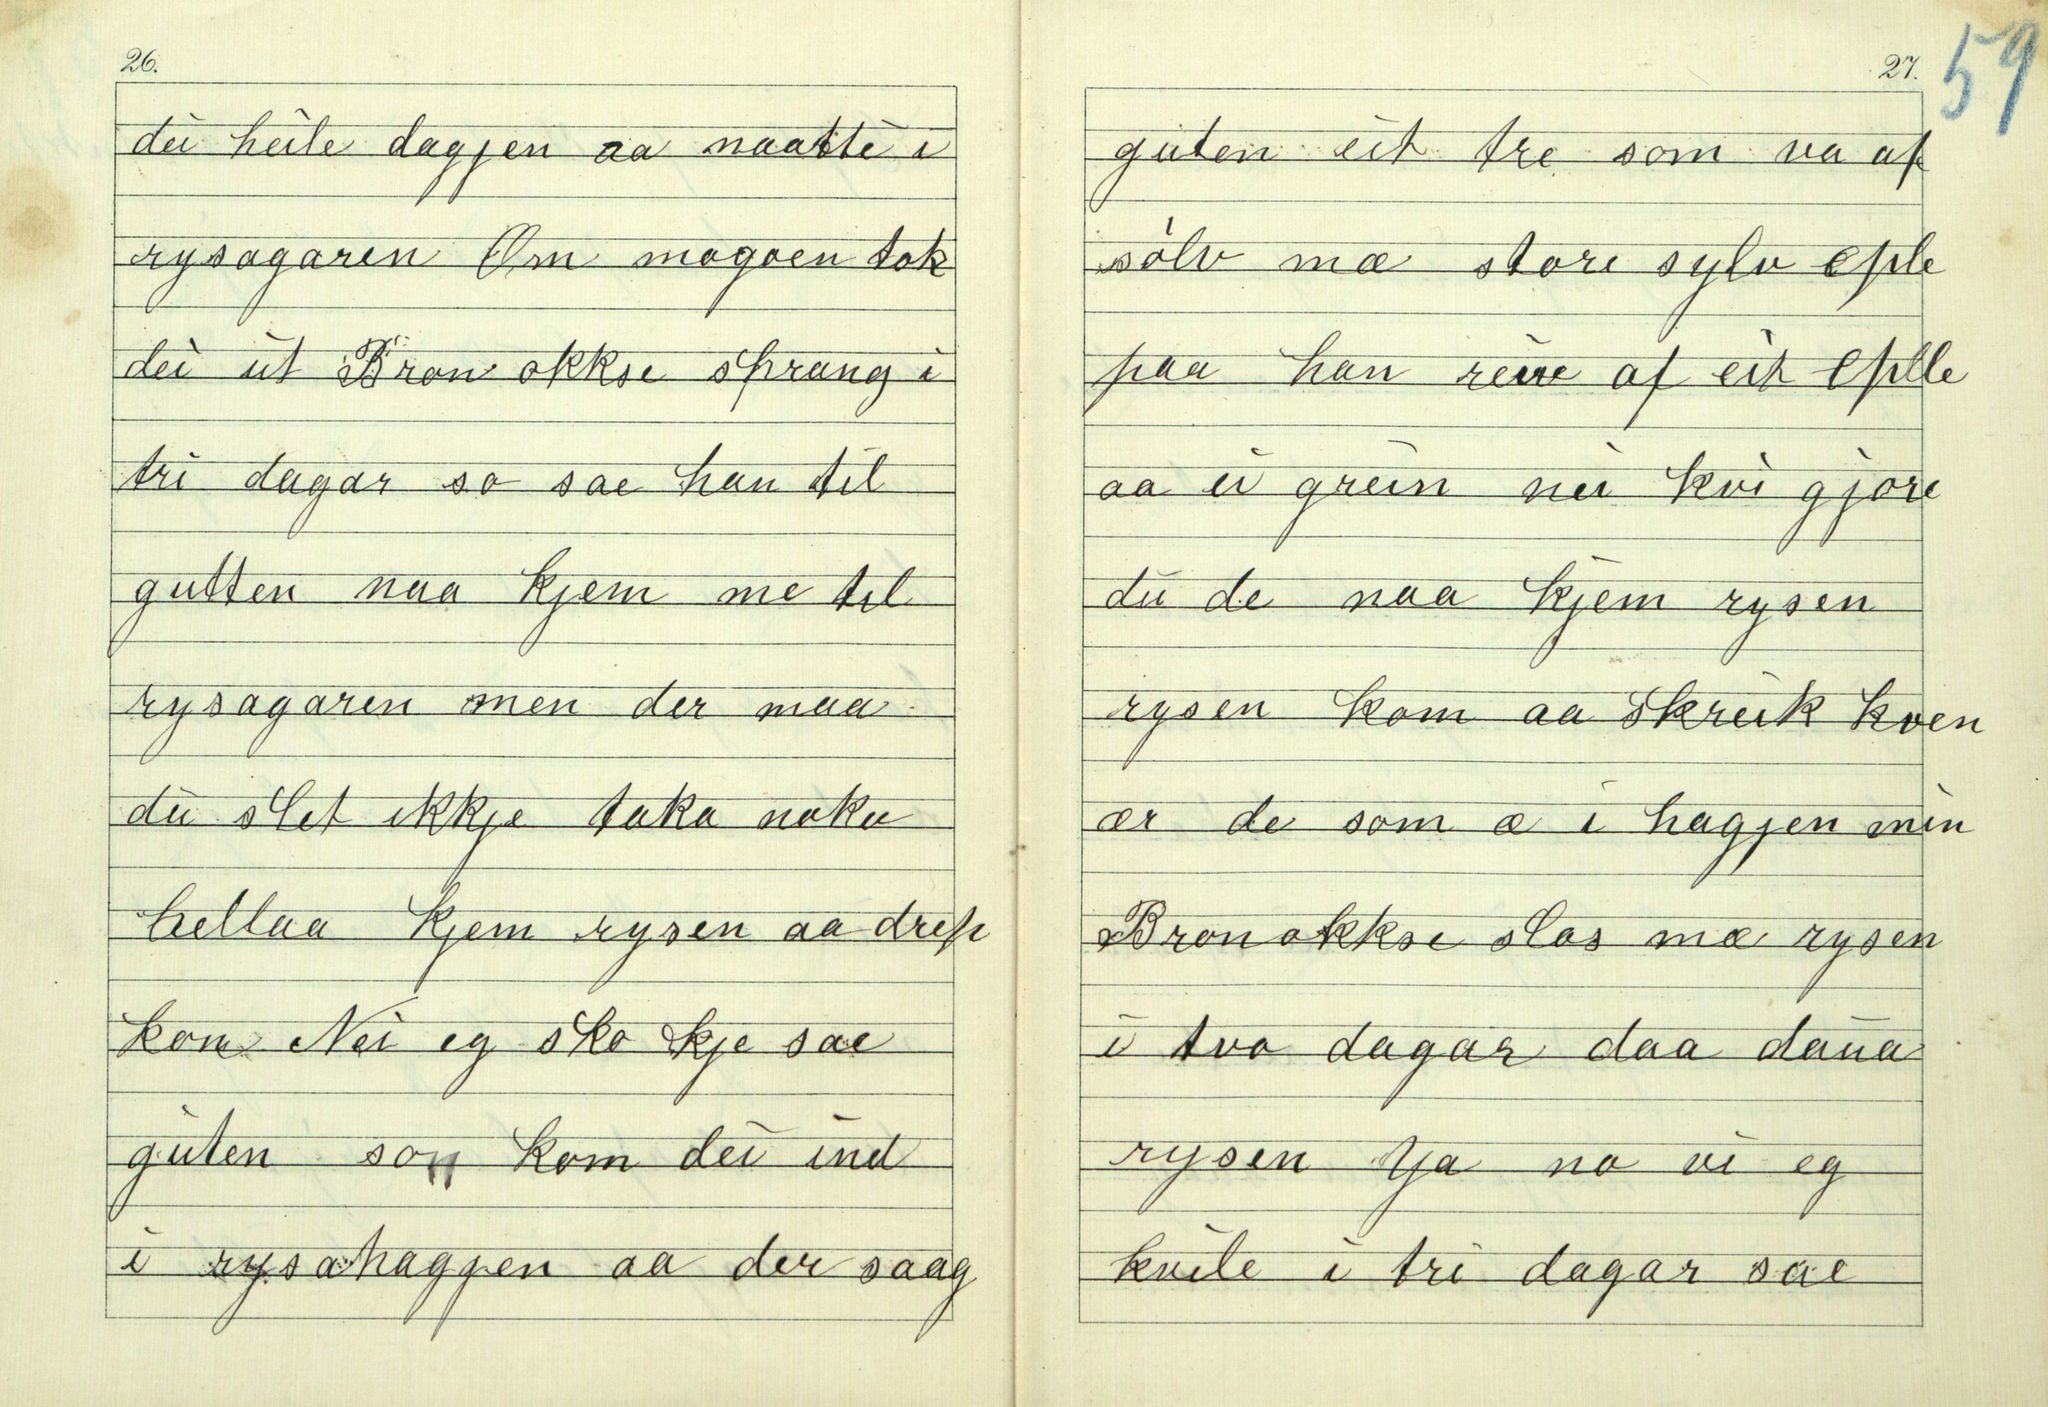 26.
dei heile dagjen aa naatte i
rysagaren Om mogoen tok
dei ut Bron okkse sprang i
tri dagar so sae han til
gutten naa kjem me til
rysagaren men der maa
du slet ikkje taka noko
hellaa kjem rysen aa drep
kon Nei eg sko kje sae
guten son kom dei ind
i rysahagjen aa der saag
27.
59
guten eit tre som va af
sölv mæ store sylv eple
paa han reiv af eit eplle
aa ei grein nei kvi gjore
du de naa kjem rysen
rysen kom aa skreik kven
ær de som æ i hagjen min
Bron okkse slos mæ rysen
i tvo dagar daa daua
rysen Ya no vi eg
kvile i tri dagar sae